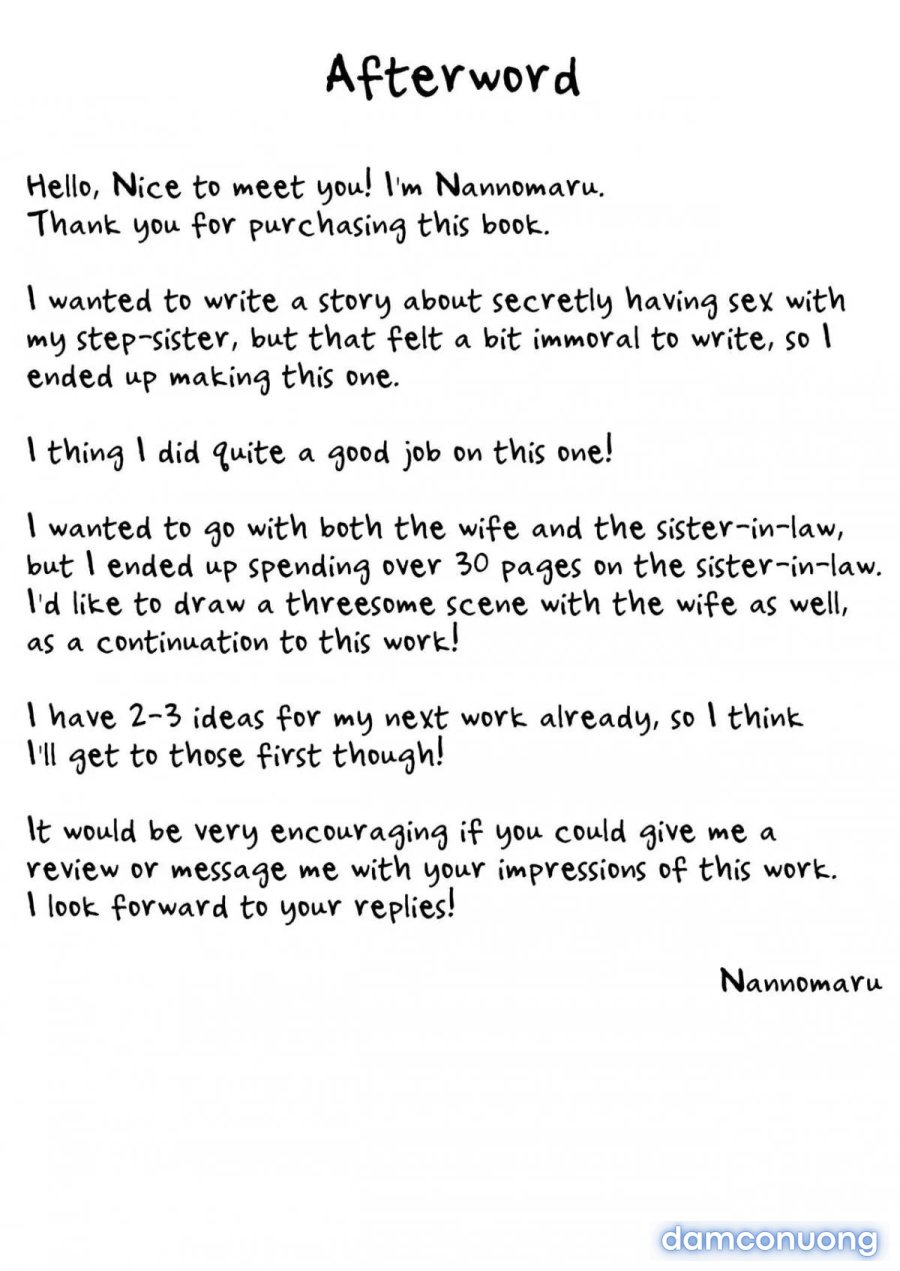 Afterword
Hello, Nice to meet you! I'm Nannomaru.
Thank you for purchasing this book.
I wanted to write a story about secretly having sex with
my step-sister, but that felt a bit immoral to write, so I
ended up making this one.
I thing I did quite a good job on this one!
I wanted to go with both the wife and the sister-in-law,
but I ended up spending over 30 pages on the sister-in-law.
I'd like to draw a threesome scene with the wife as well,
as a continuation to this work!
I have 2-3 ideas for my next work already, so I think
I'll get to those first though!
It would be very encouraging if you could give me a
review or message me with your impressions of this work.
I look forward to your replies!
Nannomaru
damconuong